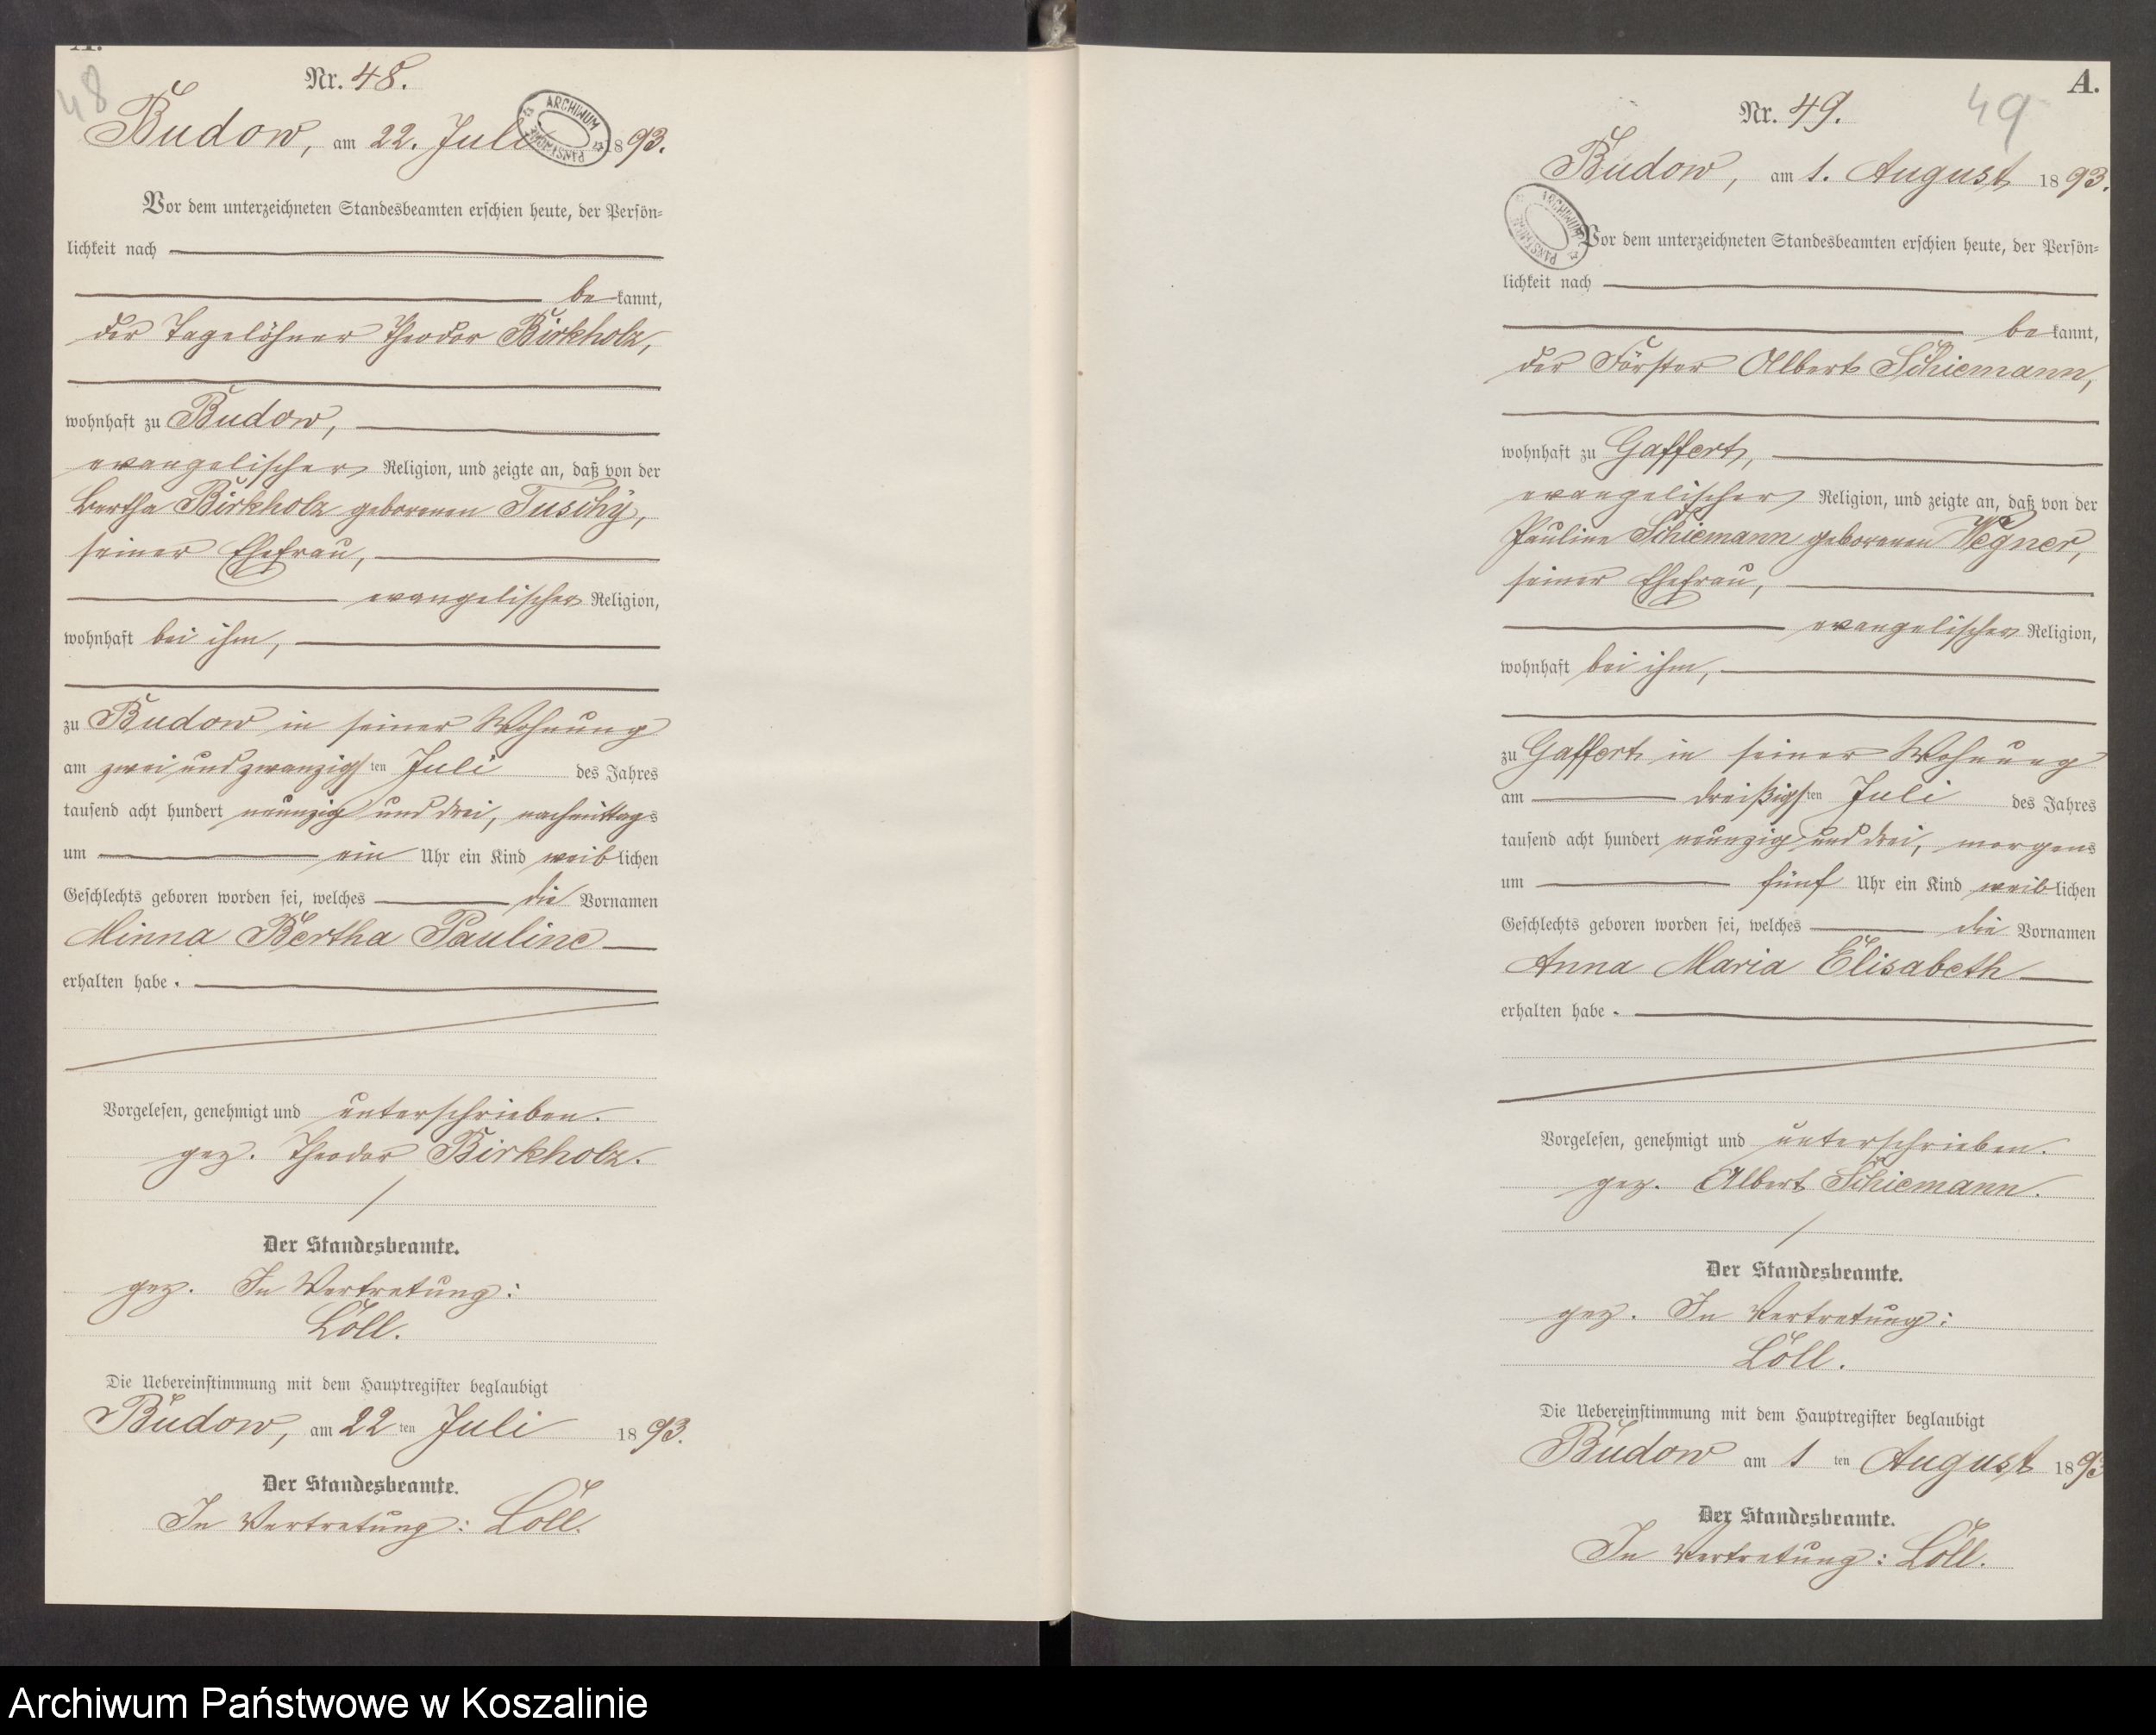 A.
48
Nr. 48.
Budow, am 22. Juli 1893.
ARCHIWUM PAŃSTWOWE
Vor dem unterzeichneten Standesbeamten erschien heute, der Persön-
lichkeit nach
be kannt,
der Tagelöhner Theodor Birkholz,
wohnhaft zu Budow,
evangelischer Religion, und zeigte an, daß von der
Bertha Birkholz geborenen Tuschÿ,
seiner Ehefrau,
evangelischer Religion,
wohnhaft bei ihm,
zu Budow in seiner Wohnung
am zwei und zwanzigsten Juli des Jahres
tausend acht hundert neunzig und drei, nachmittags
um ein Uhr ein Kind weiblichen
Geschlechts geboren worden sei, welches die Vornamen
Minna Bertha Pauline
erhalten habe.
Vorgelesen, genehmigt und unterschrieben.
gez. Theodor Birkholz.
Der Standesbeamte.
gez. In Vertretung:
Löll.
Die Uebereinstimmung mit dem Hauptregister beglaubigt
Budow, am 22ten Juli 1893.
Der Standesbeamte.
In Vertretung: Löll.
A.
49
Nr. 49.
Budow, am 1. August 1893.
ARCHIWUM PAŃSTWOWE
Vor dem unterzeichneten Standesbeamten erschien heute, der Persön-
lichkeit nach
be kannt,
der Förster Albert Schiemann,
wohnhaft zu Gaffert,
evangelischer Religion, und zeigte an, daß von der
Pauline Schiemann geborenen Wegner,
seiner Ehefrau,
evangelischer Religion,
wohnhaft bei ihm,
zu Gaffert in seiner Wohnung
am dreißigsten Juli des Jahres
tausend acht hundert neunzig und drei, morgens
um fünf Uhr ein Kind weiblichen
Geschlechts geboren worden sei, welches die Vornamen
Anna Maria Elisabeth
erhalten habe.
Vorgelesen, genehmigt und unterschrieben.
gez. Albert Schiemann.
Der Standesbeamte.
gez. In Vertretung:
Löll.
Die Uebereinstimmung mit dem Hauptregister beglaubigt
Budow am 1ten August 1893
Der Standesbeamte.
In Vertretung: Löll.
Archiwum Państwowe w Koszalinie